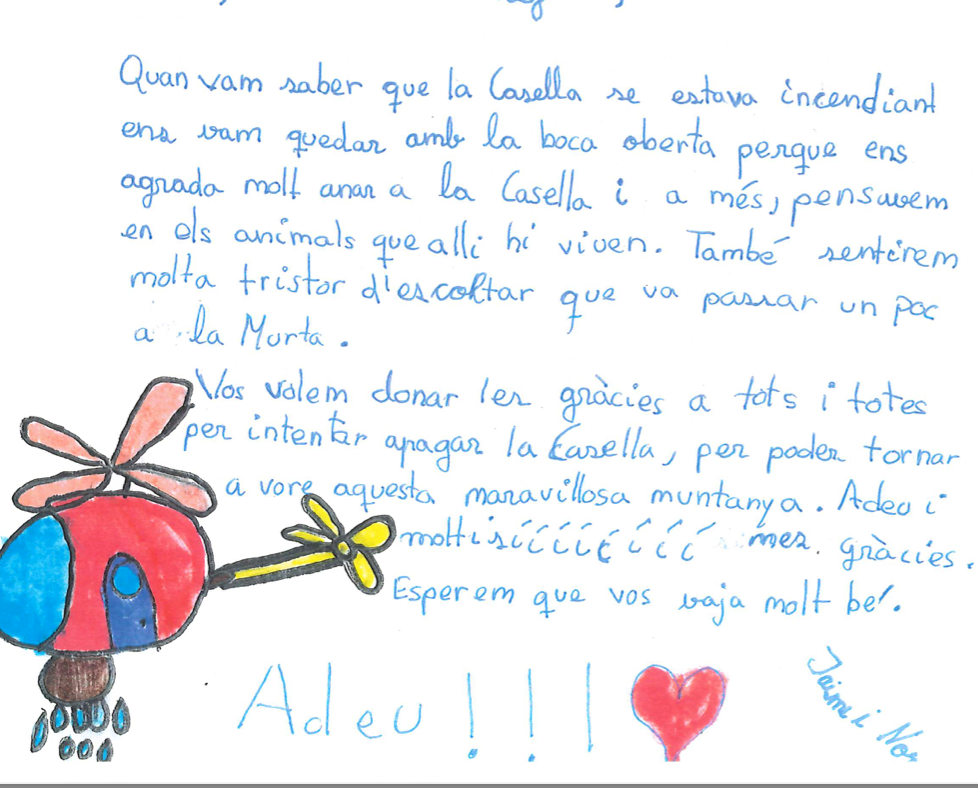 Quan vam saber que la Casella se estava incendiant
ens vam quedar amb la boca oberta perque ens
agrada molt anar a la Casella i a més, pensavem
en els animals que alli hi viuen. També sentirem
molta tristor d'escoltar que va passar un poc
a la Murta.
Vos volem donar les gràcies a tots i totes
per intentar apagar la Casella, per poder tornar
a vore aquesta maravillosa muntanya. Adeu i
moltisííííííííí mes gràcies.
Esperem que vos vaja molt bé.
Adeu!!!
Jaime i